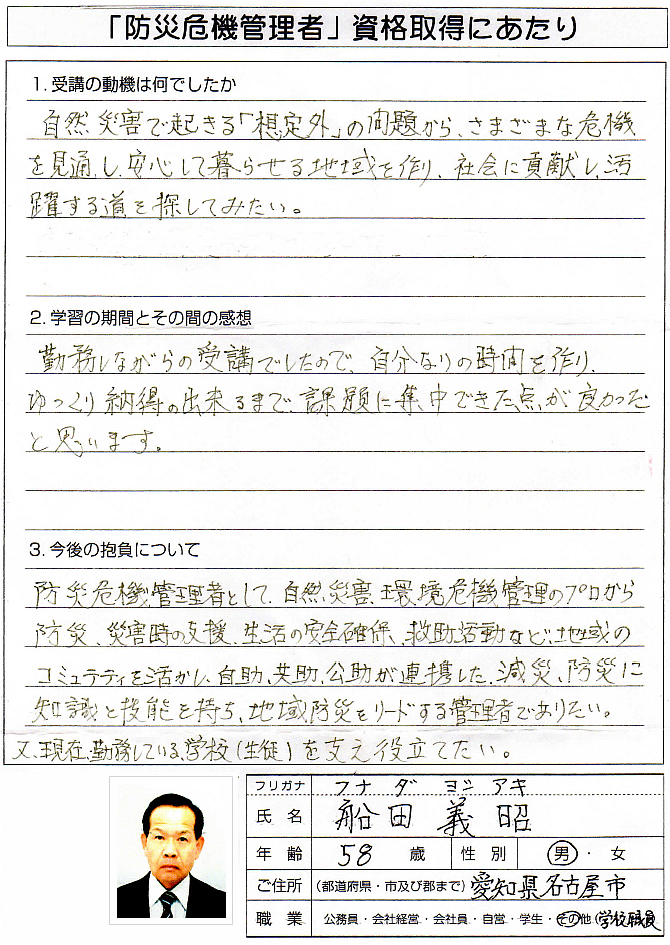 「防災危機管理者」資格取得にあたり
1. 受講の動機は何でしたか
自然災害で起きる「想定外」の問題から、さまざまな危機
を見通し、安心して暮らせる地域を作り、社会に貢献し、活
躍する道を探してみたい。
2. 学習の期間とその間の感想
勤務しながらの受講でしたので、自分なりの時間を作り、
ゆっくり納得の出来るまで、課題に集中できた点が良かった
と思います。
3. 今後の抱負について
防災危機管理者として、自然災害、環境危機管理のプロから
防災、災害時の支援、生活の安全確保、救助活動など、地域の
コミュテティを活かし、自助、共助、公助が連携した、減災、防災に
知識と技能を持ち、地域防災をリードする管理者でありたい。
又、現在、勤務している、学校(生徒)を支え役立てたい。
フリガナ フナ ダ ヨシ アキ
氏名 船田 義昭
年齢 58 歳 性別 男・女
ご住所 (都道府県・市及び郡まで) 愛知県名古屋市
職業 公務員・会社経営・会社員・自営・学生・その他(学校職員